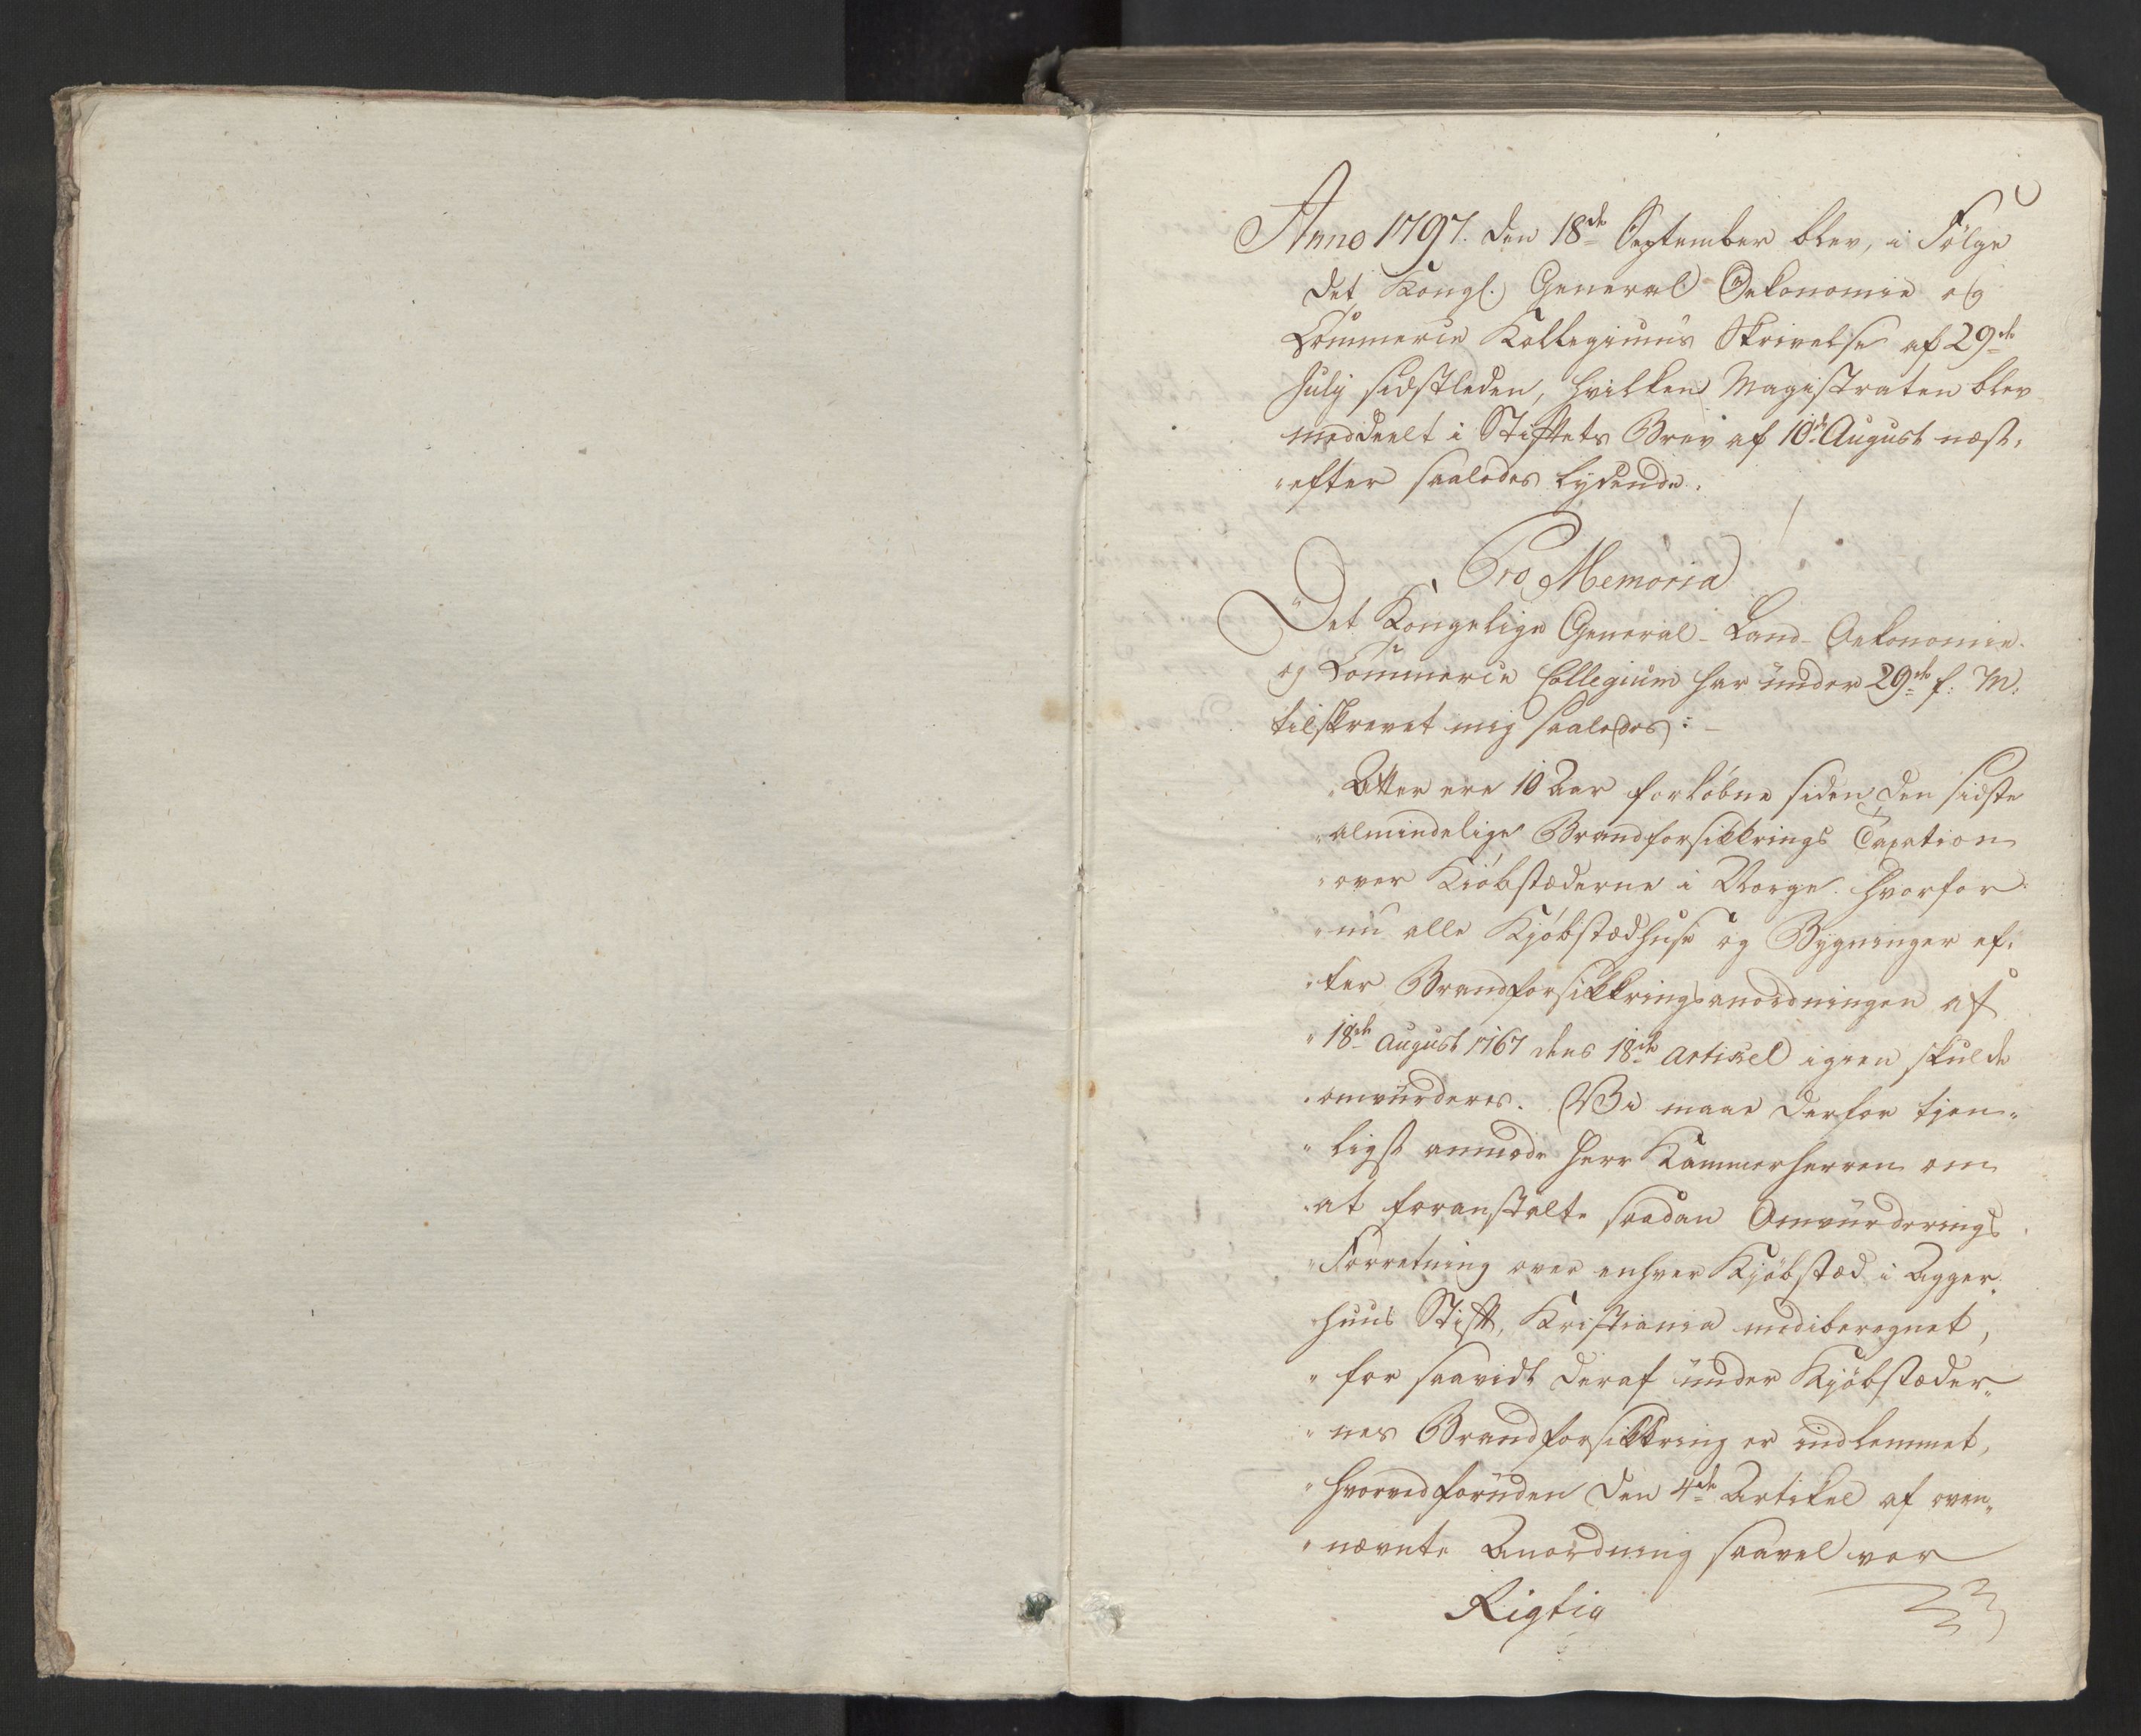 Anno 1797. den 18de September blev, i Følge
det Kongl. General Oekonomie og
Commerce Kollegiums Skrivelse af 29de
July sidstleden, hvilken Magistraten blev
meddeelt i Stiftets Brev af 10de August næst„
„efter saaledes lydende.
Pro Memoria
Det Kongelige General-Land-Oekonomie-
og Commerce Collegium har under 29de f: M:
tilskrevet mig saaledes: –
„Atter ere 10 Aar forløbne siden den sidste
„almindelige Brandforsikkrings Taxation
„over Kiøbstæderne i Norge. hvorfor
„nu alle Kjøbstædhuse og Bygninger ef„
„ter Brandforsikkringsanordningen af
„18de August 1767 dens 18de Artikel igien skulde
„omvurderes. Vi maae derfor tjen„
„ligst anmode Herr Kammerherren om
„at foranstalte saadan Omvurderings
„Forretning over enhver Kjøbstæd i Agger„
„huus Stift, Kristiania mediberegnet,
„for saavidt deraf under Kjøbstæder„
„nes Brandforsikkring er indlemmet,
„hvorved foruden den 4de Artikel af oven„
„nævnte Anordning saavel vor
Rigtig